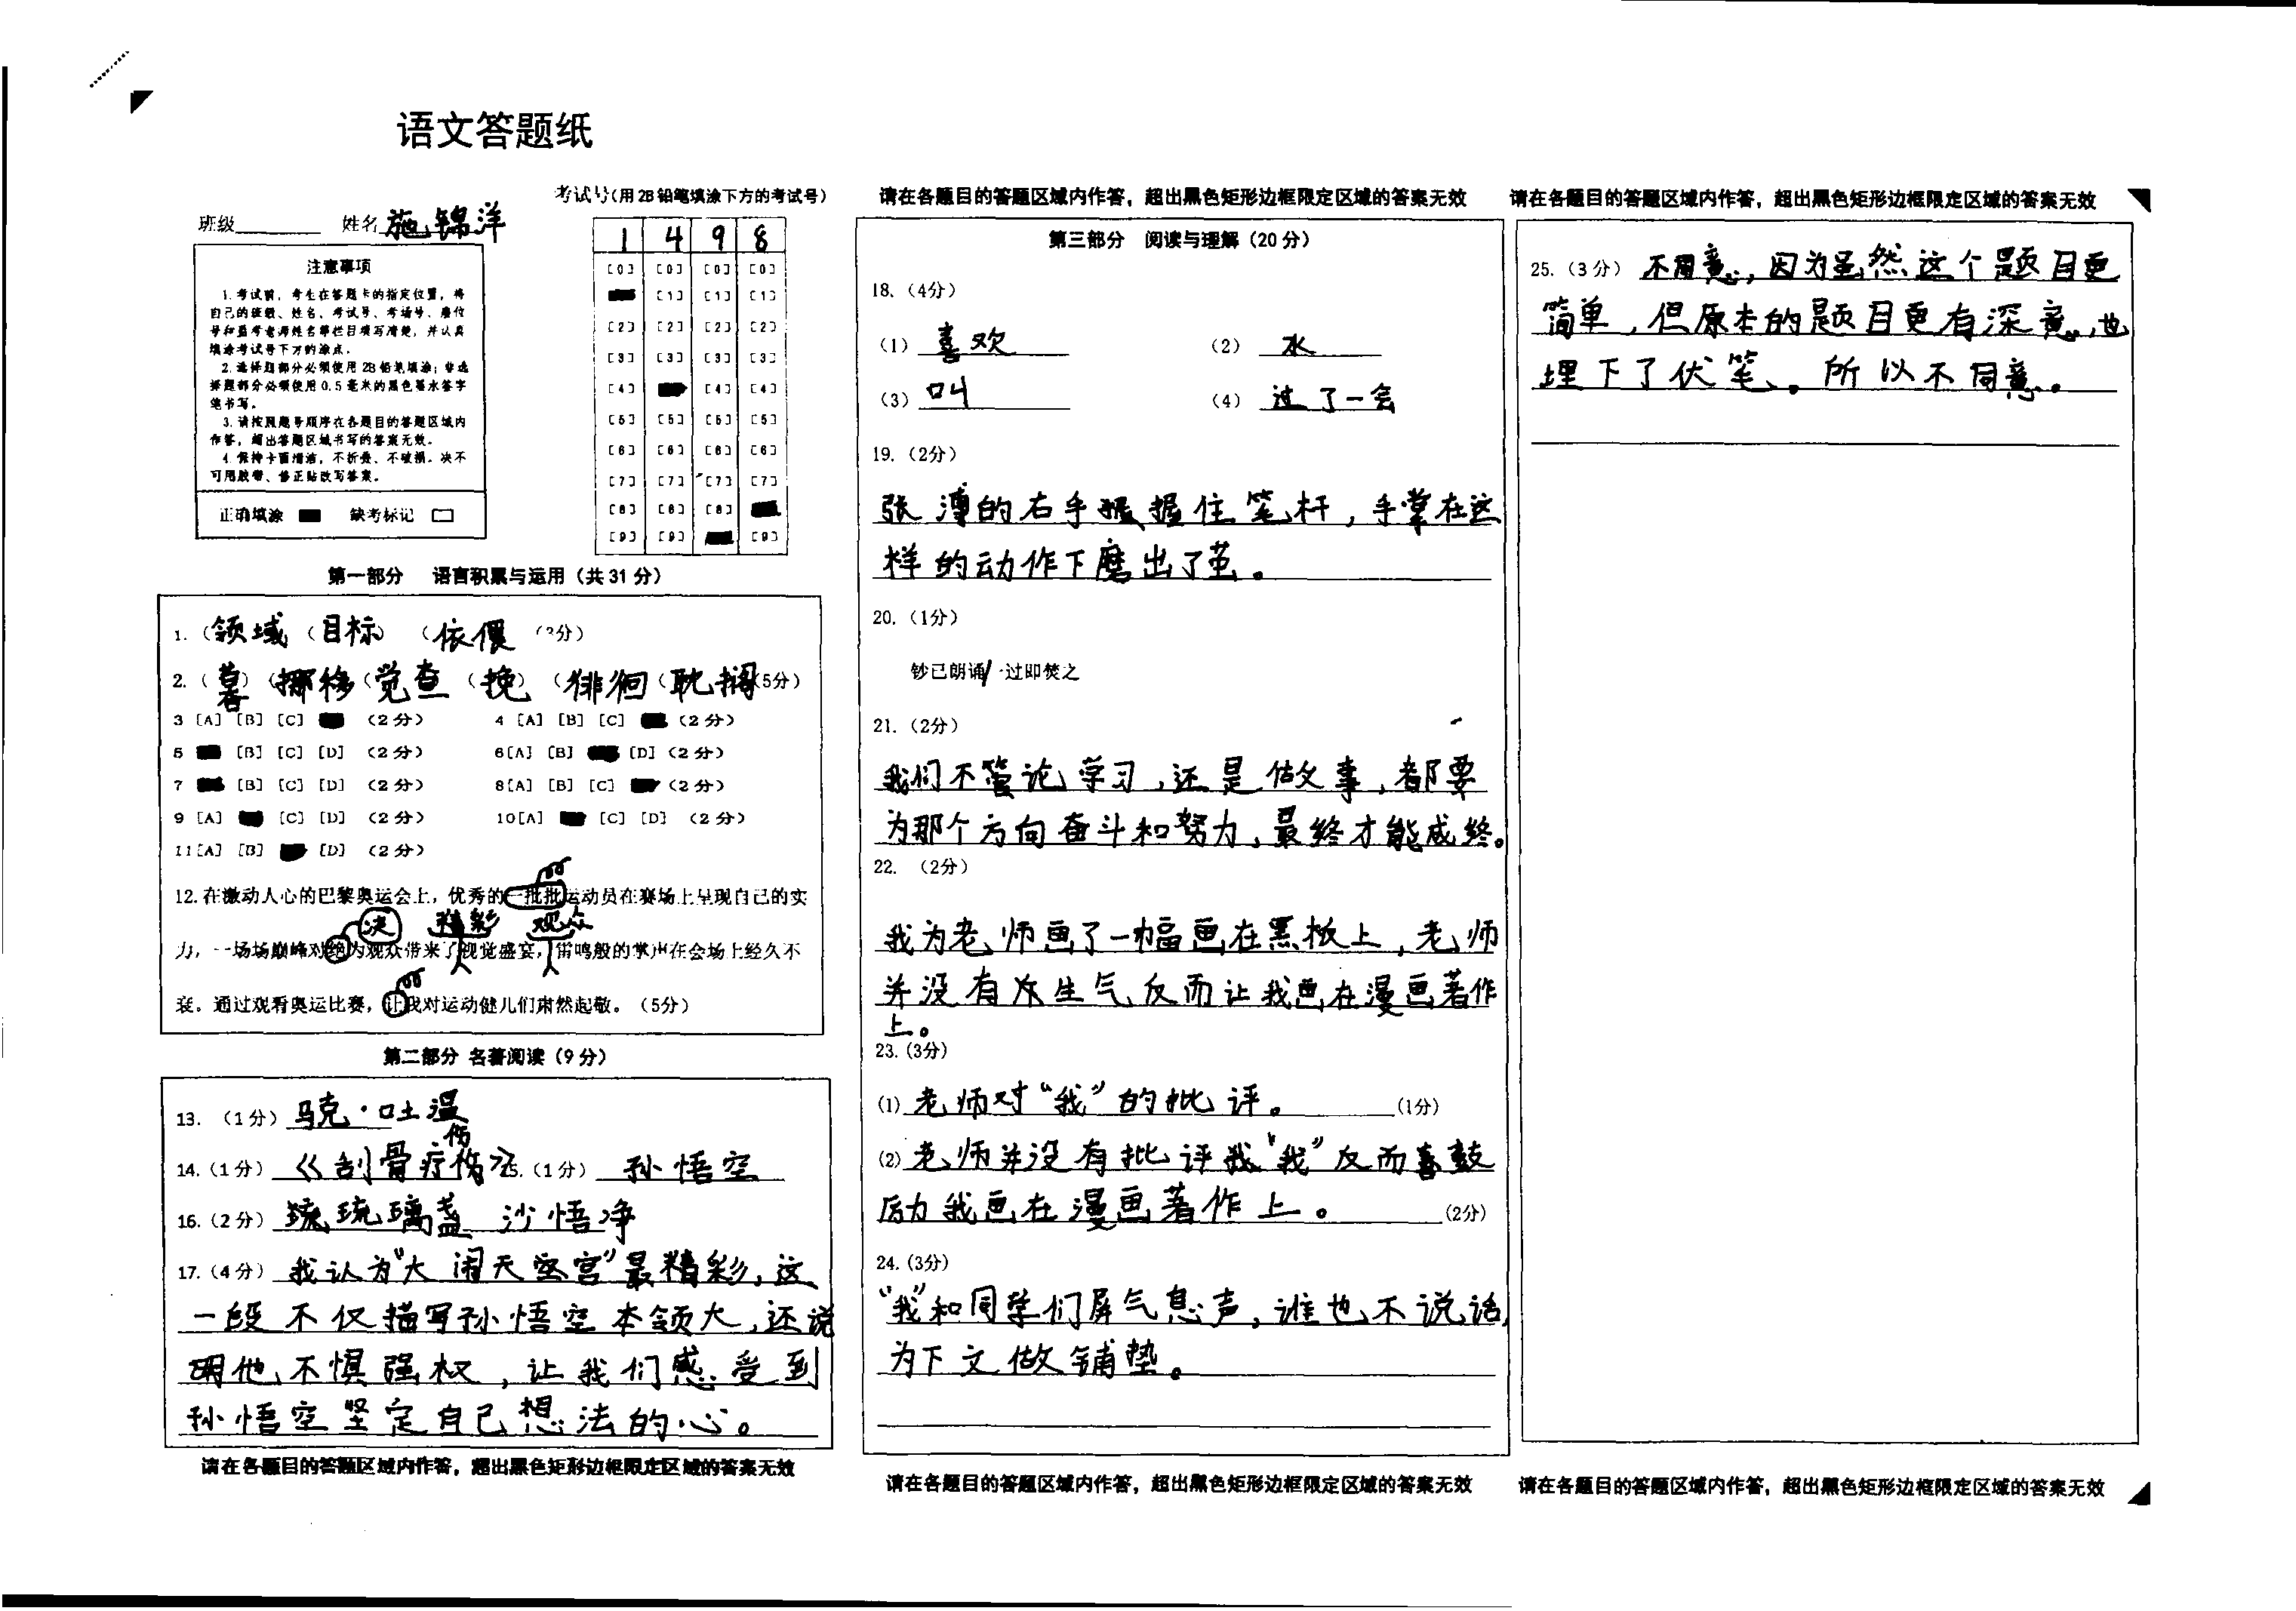 语文答题纸
班级 姓名 施锦洋
考试号(用 2B 铅笔填涂下方的考试号)
1 4 9 8
[0] [0] [0] [0]
[1] [1] [1]
[2] [2] [2] [2]
[3] [3] [3] [3]
[4] [4] [4]
[5] [5] [5] [5]
[6] [6] [6] [6]
[7] [7] [7] [7]
[8] [8] [8]
[9] [9] [9]
注意事项
1.考试前，考生在答题卡的指定位置，将
自己的班级、姓名、考试号、考场号、座位
号和监考老师姓名等栏目填写清楚，并认真
填涂考试号下方的涂点。
2.选择题部分必须使用 2B 铅笔填涂；非选
择题部分必须使用 0.5 毫米的黑色墨水签字
笔书写。
3.请按照题号顺序在各题目的答题区域内
作答，超出答题区域书写的答案无效。
4.保持卡面增洁，不折叠、不破损。决不
可用胶带、修正贴改写答案。
正确填涂 缺考标记
第一部分 语言积累与运用（共 31 分）
1.（领域（目标）（依偎（3分）
2.（ ）（挪移（觉查（挽）（徘徊（耽搁（5分）
3 [A] [B] [C] （2 分） 4 [A] [B] [C] （2 分）
5 [B] [C] [D] （2 分） 6[A] [B] [D]（2 分）
7 [B] [C] [D] （2 分） 8[A] [B] [C] （2 分）
9 [A] [C] [D] （2 分） 10[A] [C] [D] （2 分）
11[A] [B] [D] （2 分）
12.在激动人心的巴黎奥运会上，优秀的一批批运动员在赛场上呈现自己的实
决 精彩 观众
力，一场场巅峰对绝为观众带来了视觉盛宴，雷鸣般的掌声在会场上经久不
衰。通过观看奥运比赛，让我对运动健儿们肃然起敬。（5分）
第二部分 名著阅读（9 分）
13. （1 分）马克·吐温
14.（1 分）《刮骨疗伤》 15.（1 分） 孙悟空
16.（2 分） 琉琉璃盏 沙悟净
17.（4 分） 我认为“大闹天宫”最精彩，这
一段不仅描写孙悟空本领大，还说
明他不惧强权，让我们感受到
孙悟空坚定自己想法的心。
请在各题目的答题区域内作答，超出黑色矩形边框限定区域的答案无效
请在各题目的答题区域内作答，超出黑色矩形边框限定区域的答案无效
第三部分 阅读与理解（20 分）
18.（4分）
（1） 喜欢 （2） 水
（3） 叫 （4） 过了一会
19.（2分）
张溥的右手握握住笔杆，手掌在这
样的动作下磨出了茧。
20.（1分）
钞已朗诵/一过即焚之
21.（2分）
我们不管论学习，还是做事，都要
为那个方向奋斗和努力，最终才能成终。
22. （2分）
我为老师画了一幅画在黑板上，老师
并没有 生气，反而让我画在漫画著作
上。
23.(3分)
(1) 老师对“我”的批评。 (1分)
(2) 老师并没有批评我“我”反而喜鼓
励我画在漫画著作上。 (2分)
24.(3分)
“我”和同学们屏气息声，谁也不说话，
为下文做铺垫。
请在各题目的答题区域内作答，超出黑色矩形边框限定区域的答案无效
请在各题目的答题区域内作答，超出黑色矩形边框限定区域的答案无效
25.（3 分） 不同意，因为虽然这个题目更
简单，但原本的题目更有深意，也
埋下了伏笔、。所以不同意。
请在各题目的答题区域内作答，超出黑色矩形边框限定区域的答案无效